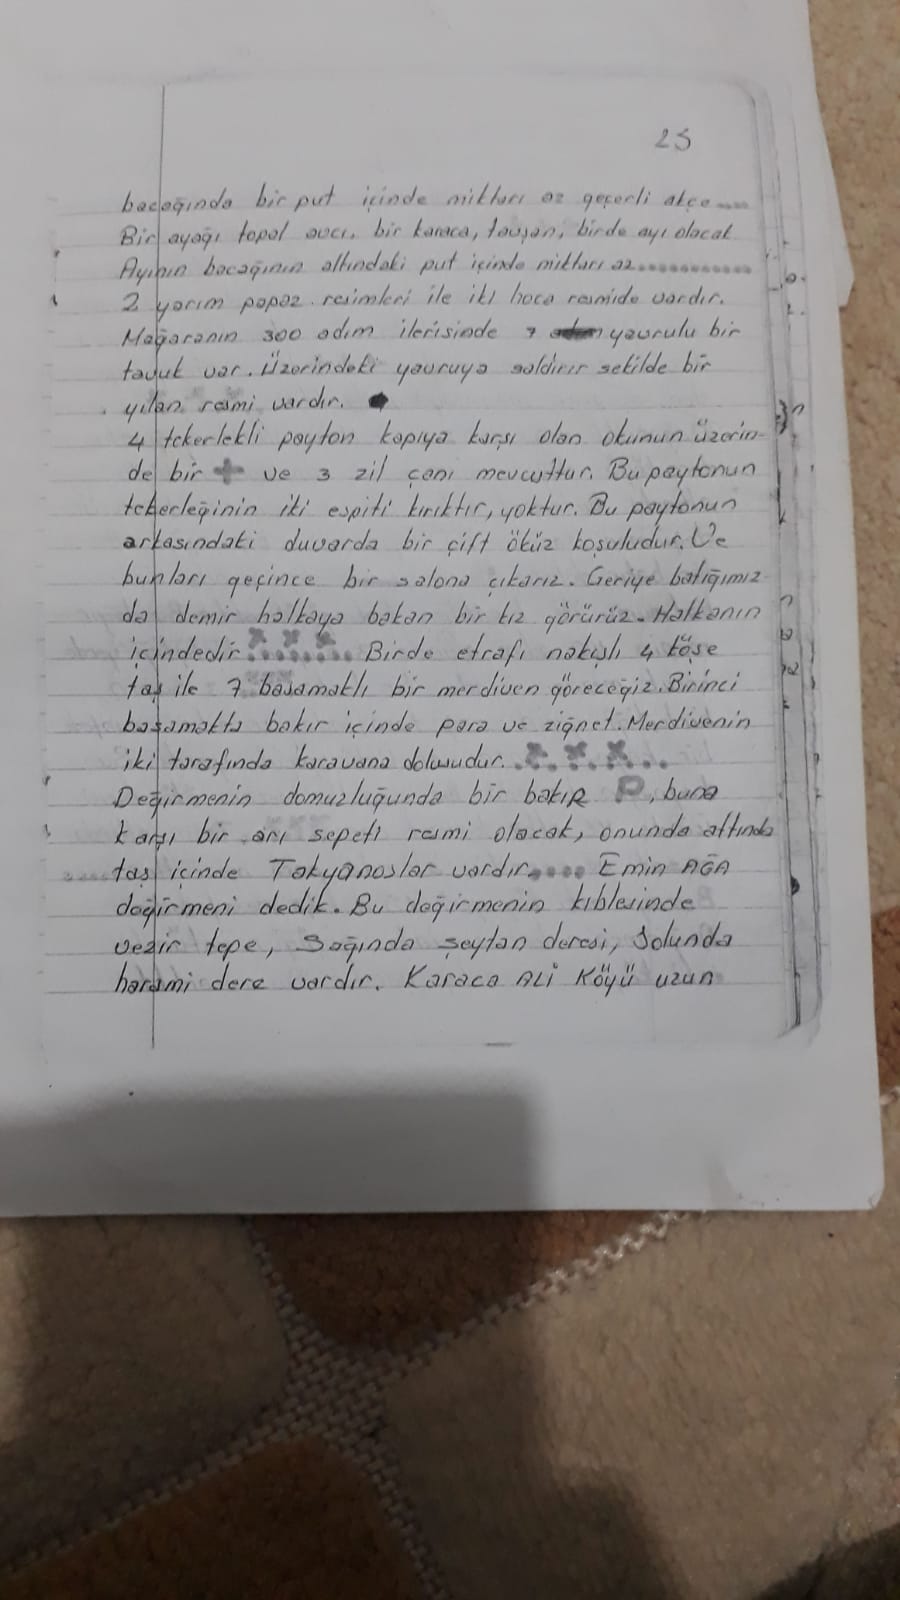 25
bacağında bir put içinde miktarı az geçerli akçe....
Bir ayağı topal avcı, bir karaca, tavşan, birde ayı olacak
Ayının bacağının altındaki put içinde miktarı az............
2 yarım papaz resimleri ile iki hoca resmide vardır.
Mağaranın 300 adım ilerisinde 7 yavrulu bir
tavuk var. Üzerindeki yavruya saldırır şekilde bir
yılan resmi vardır.
4 tekerlekli payton kapıya karşı olan okunun üzerin-
de bir + ve 3 zil çanı mevcuttur. Bu paytonun
tekerleğinin iki espiti kırıktır, yoktur. Bu paytonun
arkasındaki duvarda bir çift öküz koşuludur. Ve
bunları geçince bir salona çıkarız. Geriye batığımız-
da demir halkaya bakan bir kız görürüz. Halkanın
içindedir x x x ........ Birde etrafı nakışlı 4 köşe
taş ile 7 basamaklı bir merdiven göreceğiz. Birinci
basamakta bakır içinde para ve ziğnet. Merdivenin
iki tarafında karavana dolusudur. . x . x . x . .
Değirmenin domuzluğunda bir bakıR P, buna
karşı bir arı sepeti resmi olacak, onunda altında
taş içinde Takyanoslar vardır..... Emin AĞA
değirmeni dedik. Bu değirmenin kıblesinde
vezir tepe, Sağında şeytan deresi, Solunda
harami dere vardır. Karaca ALİ Köyü uzun